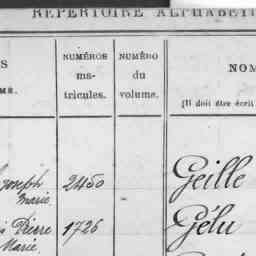 RÉPERTOIRE ALPHABÉTI
S
MS.
NUMÉROS
ma-
tricules.
NUMÉRO
du
volume.
NOM
(Il doit être écrit
Joseph
Marie
2450
Geille
Pierre
Marie
1726
Gélu